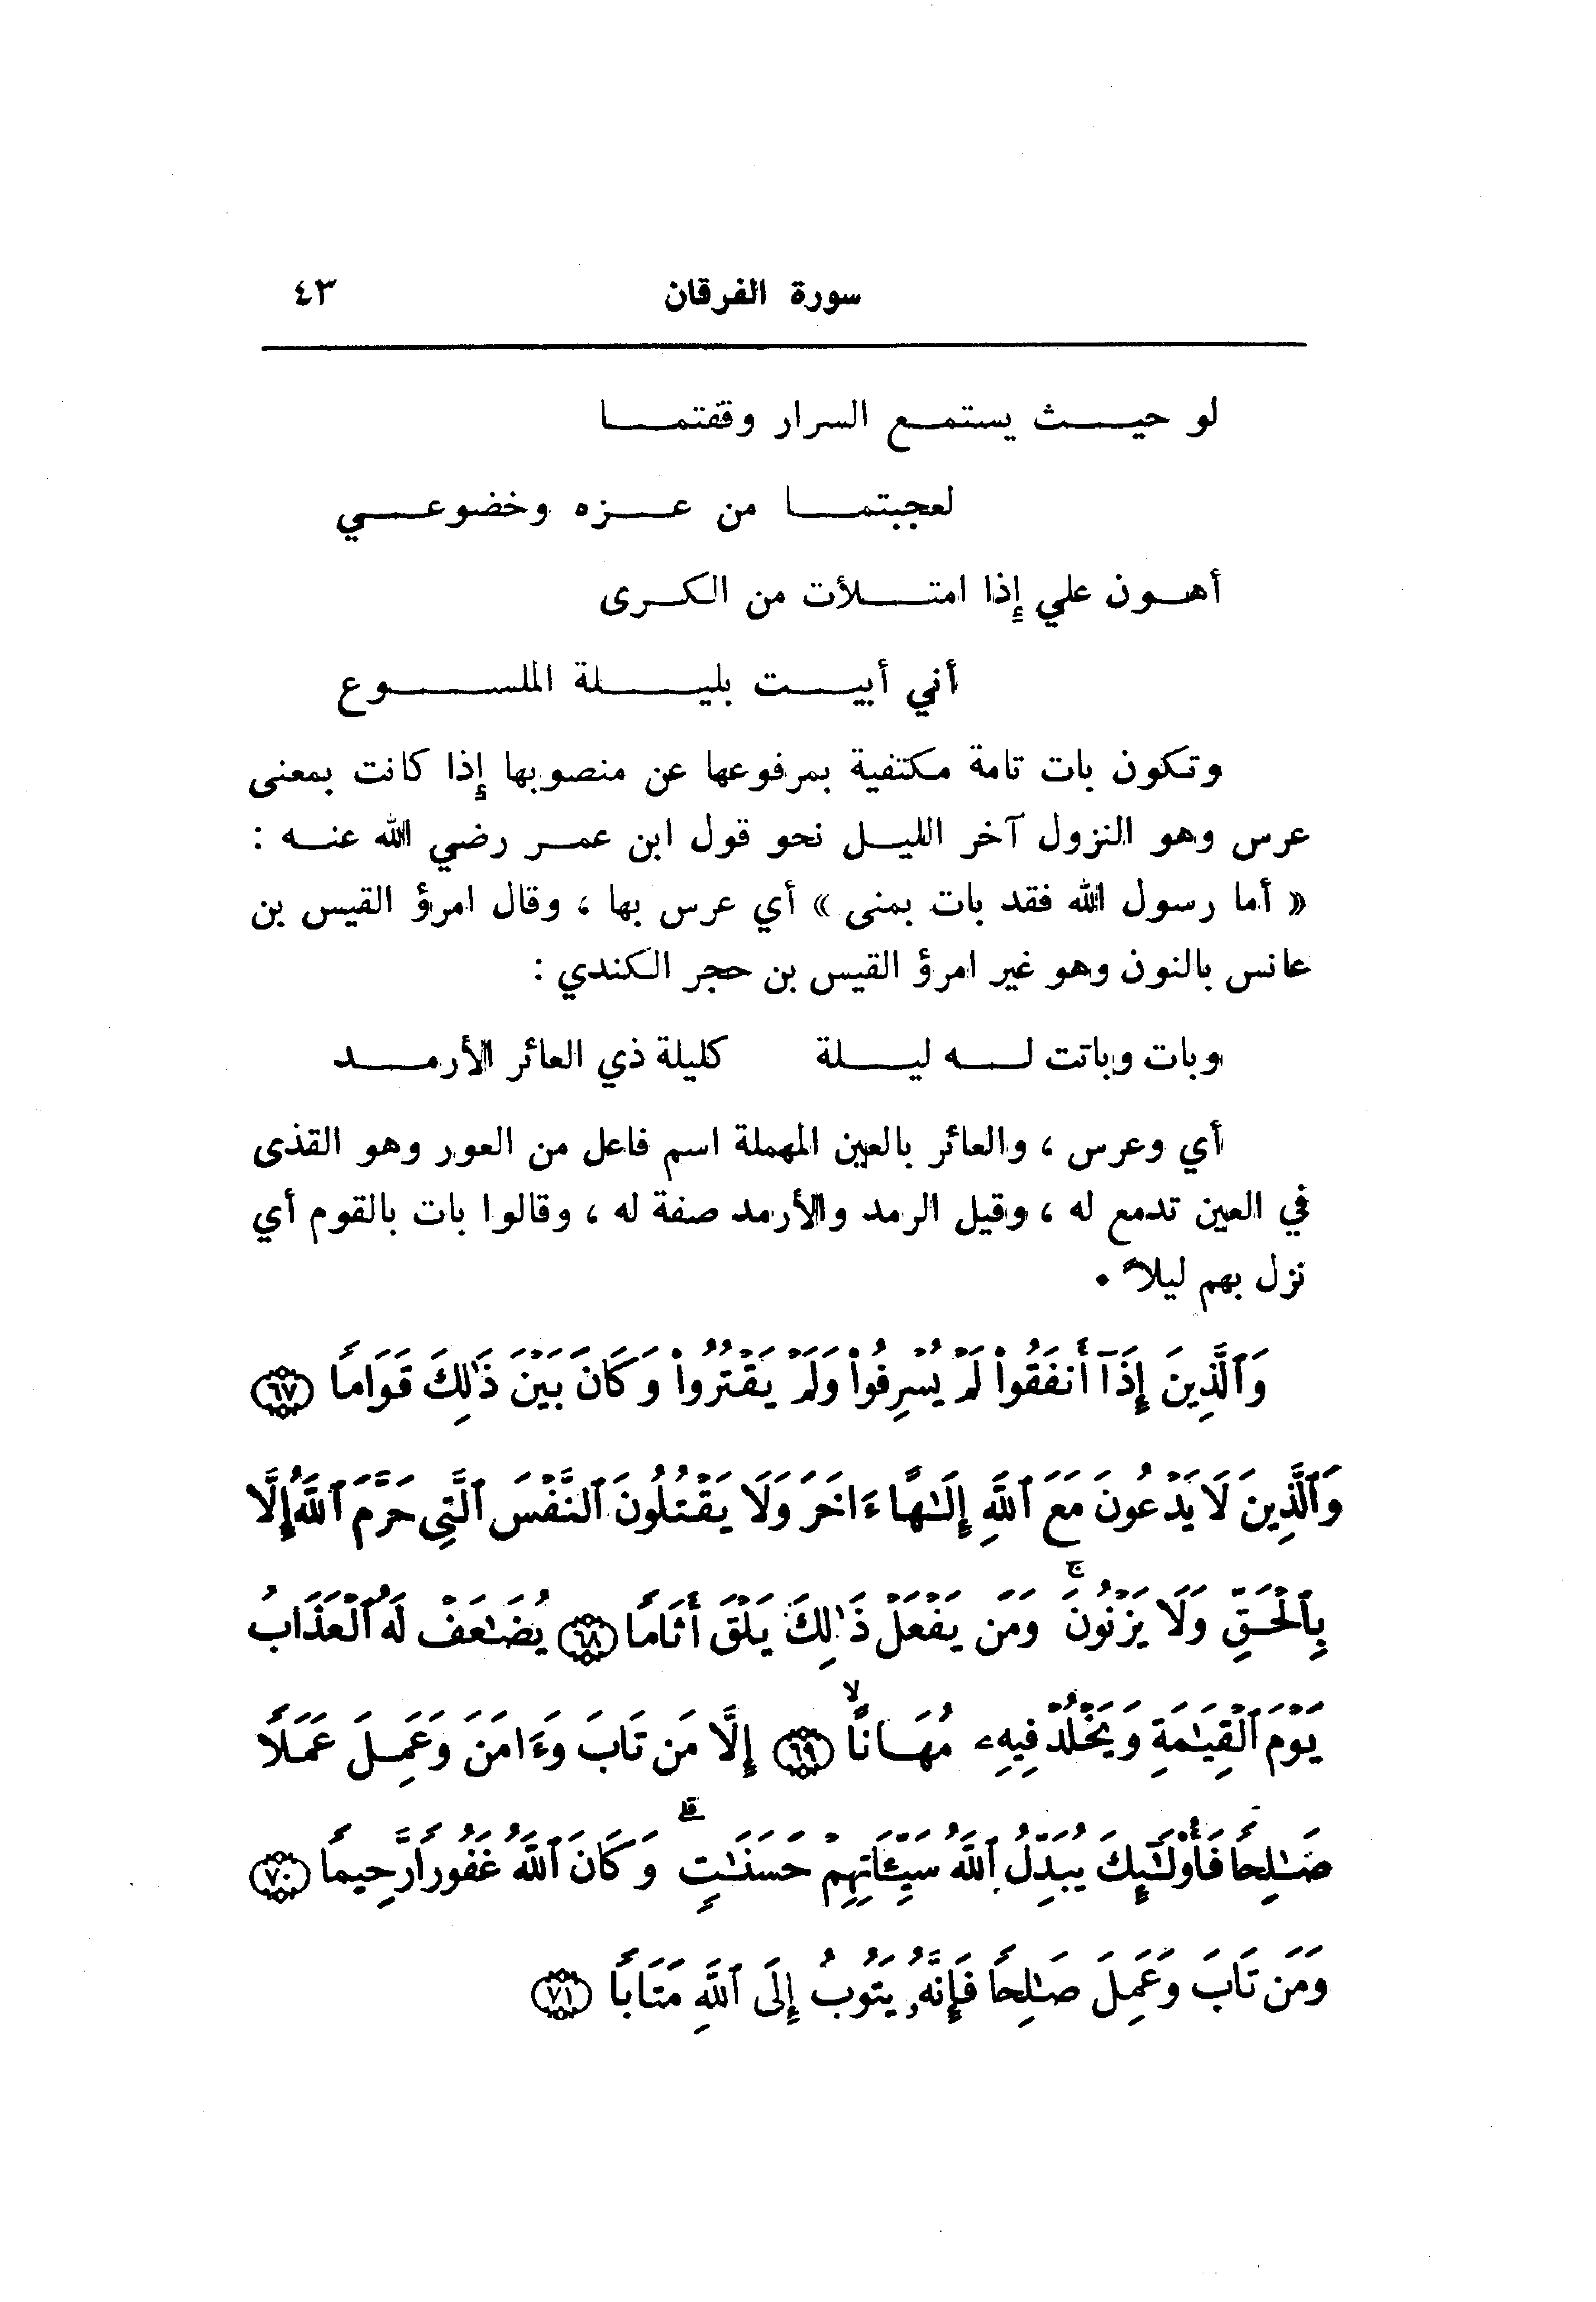 سورة الفرقان ٤٣
لو حيث يستمع السرار وقفتما
لعجبتما من عزه وخضوعي
أهون علي إذا امتلأت من الكرى
أني أبيت بليلة الملسوع
وتكون بات تامة مكتفية بمرفوعها عن منصوبها إذا كانت بمعنى
عرس وهو النزول آخر الليل نحو قول ابن عمر رضي الله عنه :
« أما رسول الله فقد بات بمنى » أي عرس بها ، وقال امرؤ القيس بن
عانس بالنون وهو غير امرؤ القيس بن حجر الكندي :
وبات وباتت له ليلة كليلة ذي العائر الأرمد
أي وعرس ، والعائر بالعين المهملة اسم فاعل من العور وهو القذى
في العين تدمع له ، وقيل الرمد والأرمد صفة له ، وقالوا بات بالقوم أي
نزل بهم ليلاً .
وَٱلَّذِينَ إِذَآ أَنفَقُواْ لَمْ يُسْرِفُواْ وَلَمْ يَقْتُرُواْ وَكَانَ بَيْنَ ذَٰلِكَ قَوَامًا ﴿٦٧﴾
وَٱلَّذِينَ لَا يَدْعُونَ مَعَ ٱللَّهِ إِلَٰهًا ءَاخَرَ وَلَا يَقْتُلُونَ ٱلنَّفْسَ ٱلَّتِى حَرَّمَ ٱللَّهُ إِلَّا
بِٱلْحَقِّ وَلَا يَزْنُونَ ۚ وَمَن يَفْعَلْ ذَٰلِكَ يَلْقَ أَثَامًا ﴿٦٨﴾ يُضَٰعَفْ لَهُ ٱلْعَذَابُ
يَوْمَ ٱلْقِيَٰمَةِ وَيَخْلُدْ فِيهِۦ مُهَانًا ۙ ﴿٦٩﴾ إِلَّا مَن تَابَ وَءَامَنَ وَعَمِلَ عَمَلًا
صَٰلِحًا فَأُوْلَٰٓئِكَ يُبَدِّلُ ٱللَّهُ سَيِّـَٔاتِهِمْ حَسَنَٰتٍ ۗ وَكَانَ ٱللَّهُ غَفُورًا رَّحِيمًا ﴿٧٠﴾
وَمَن تَابَ وَعَمِلَ صَٰلِحًا فَإِنَّهُۥ يَتُوبُ إِلَى ٱللَّهِ مَتَابًا ﴿٧١﴾